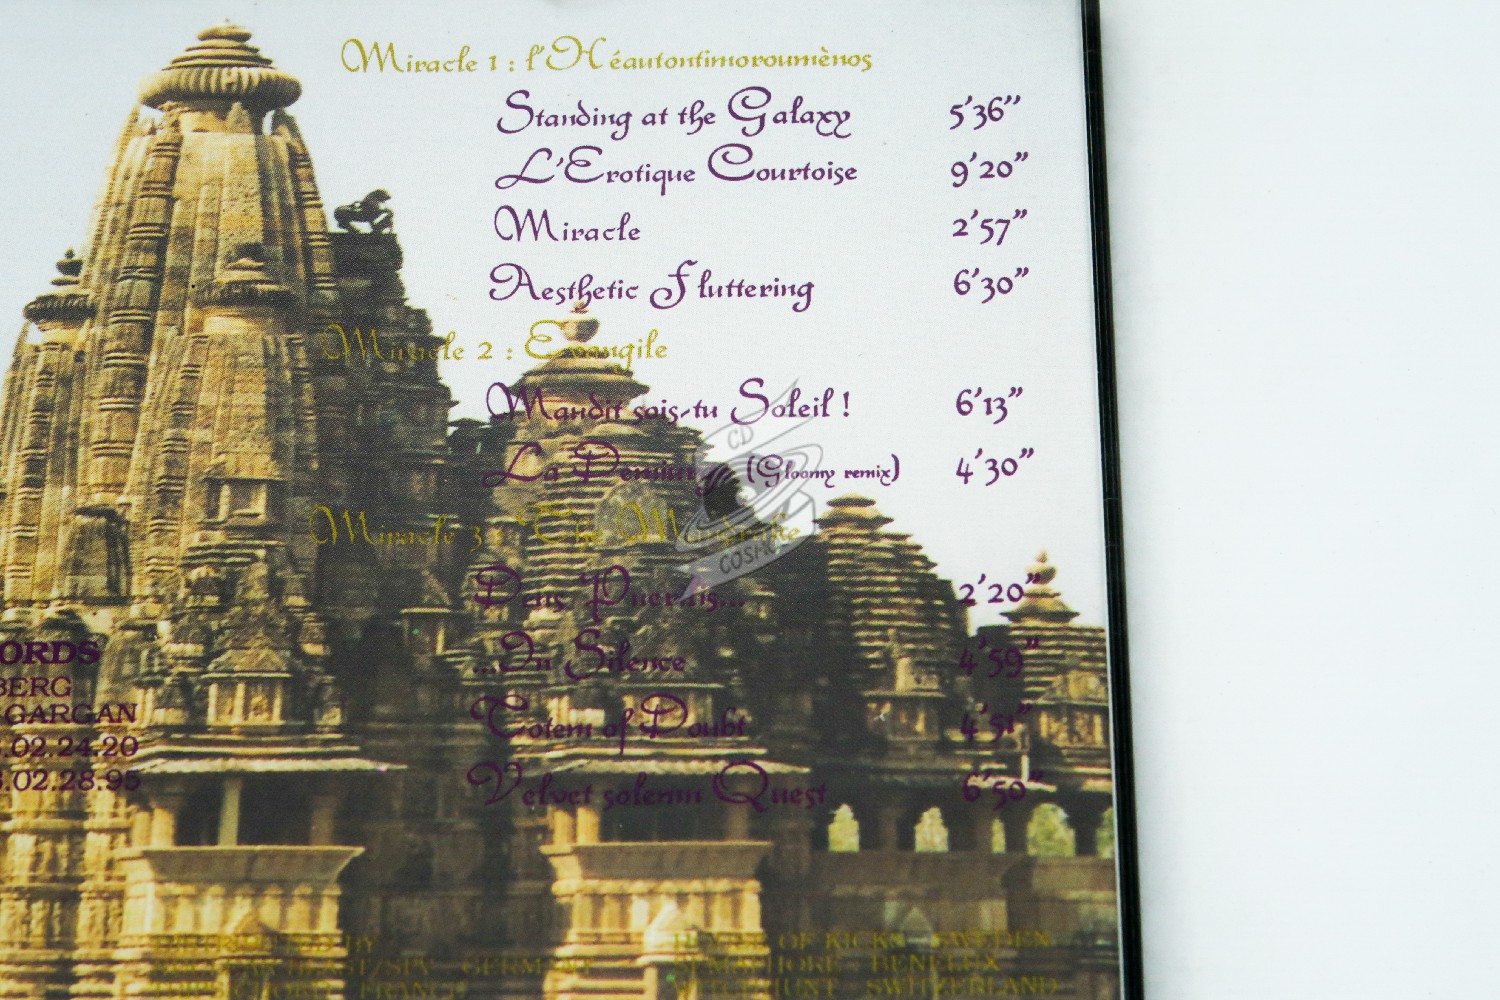 Miracle 1 : l'Héautontimorouménos
Standing at the Galaxy 5'36"
L'Erotique Courtoise 9'20"
Miracle 2'57"
Aesthetic Fluttering 6'30"
Miracle 2 : Evangile
Maudit sois-tu Soleil ! 6'13"
La (Gloomy remix) 4'30"
Miracle 3 : The
Deus 2'20"
...In Silence 4'59"
Totem of Doubt 4'51"
Velvet solemn Quest 6'50"
ORDS
BERG
GARGAN
.02.24.20
.02.28.95
CD
COSMOS
DISTRIBUTED BY
GERMANY
FRANCE
HOUSE OF KICKS - SWEDEN
SEMAPHORE - BENELUX
WITCHHUNT - SWITZERLAND